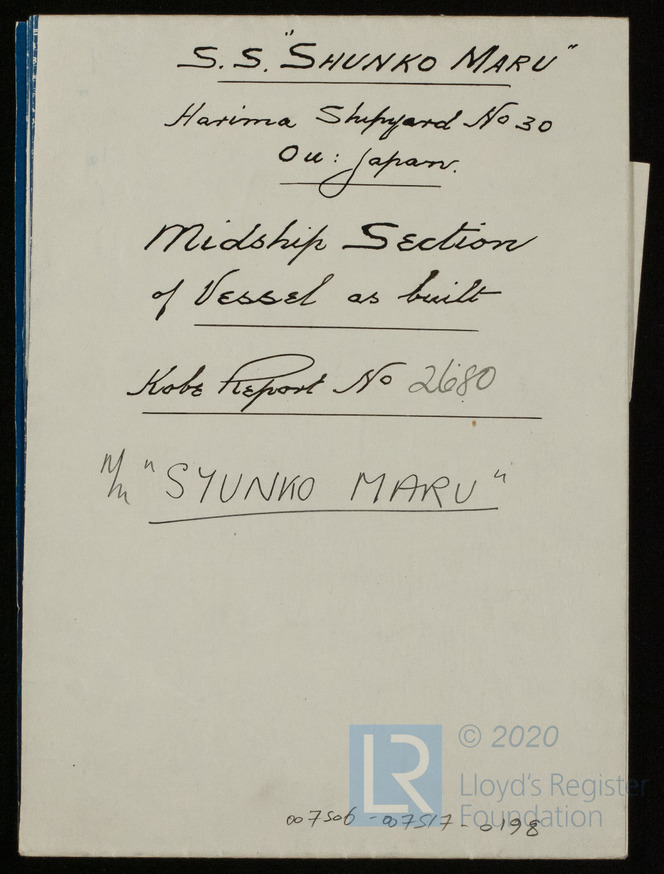 S.S. "SHUNKO MARU"
Harima Shipyard No 30
Ou: Japan.
Midship Section
of Vessel as built
Kobe Report No 2680
N/m "SYUNKO MARU"
LR
© 2020
Lloyd's Register
Foundation
007506-007517-0198